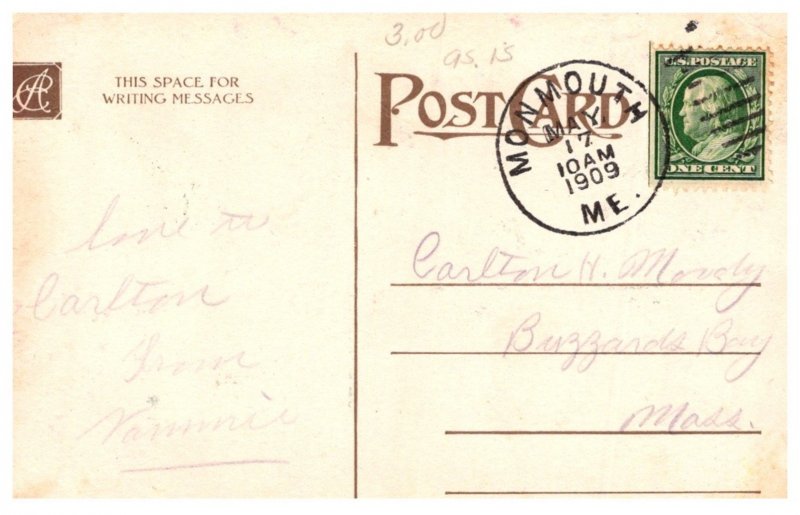 3.00
as. is
THIS SPACE FOR
WRITING MESSAGES
POST CARD
MONMOUTH
MAY
17
10 AM
1909
ME.
U.S. POSTAGE
ONE CENT
love to
Carlton
from
Carlton H. Moody
Buzzards Bay
Mass.